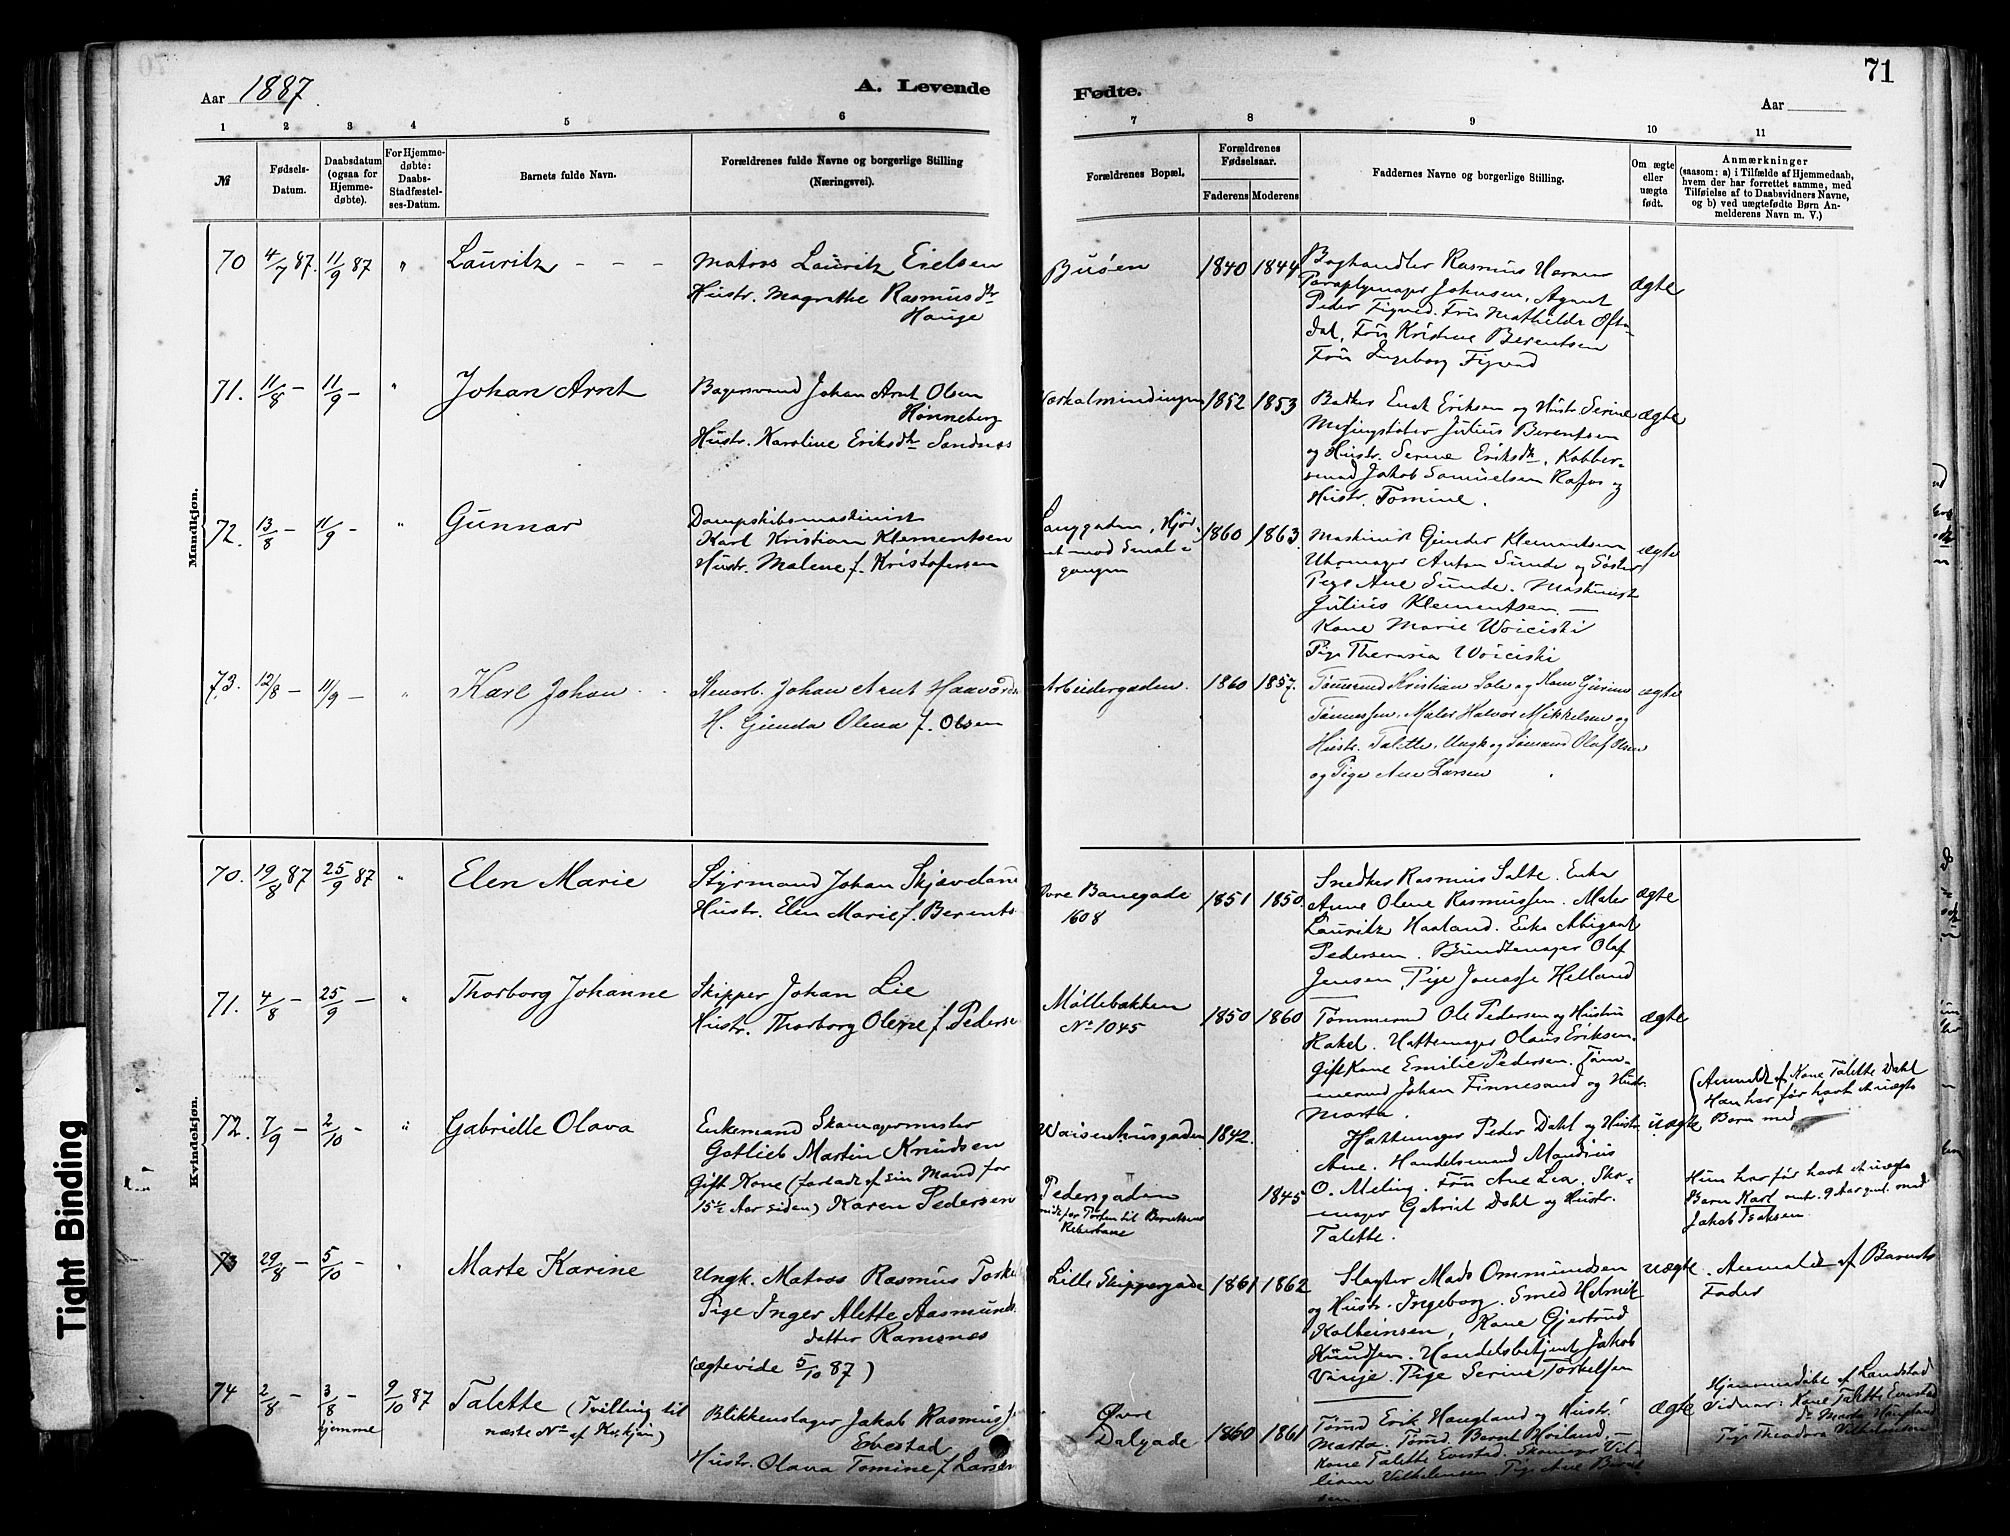 71
Aar 1887.
A. Levende
Fødte.
Aar
1 2 3 4 5 6 7 8 9 10 11
№
Fødsels-
Datum.
Daabsdatum
(ogsaa for
Hjemme-
døbte).
For Hjemme-
døbte:
Daabs-
Stadfæstel-
ses-Datum.
Barnets fulde Navn.
Forældrenes fulde Navne og borgerlige Stilling
(Næringsvei).
Forældrenes Bopæl.
Forældrenes
Fødselsaar.
Faderens Moderens
Faddernes Navne og borgerlige Stilling.
Om ægte
eller
uægte
født.
Anmærkninger
(saasom: a) i Tilfælde af Hjemmedaab,
hvem der har forrettet samme, med
Tilføielse af to Daabsvidners Navne,
og b) ved uægtefødte Børn An-
melderens Navn m. V.)
Mandkjøn.
70 4/7 87. 11/9 87 " Lauritz - - -
Matros Lauritz Eielsen
Hustr. Magrethe Rasmusdtr
Hauge
Buøen
1840 1844
Boghandler Rasmus
Paraplymager Johnsen, Agent
Peder Figved. Frü Mathilde Ofte-
dal, Frü Kristine Berentsen
Frü Ingeborg Figved
ægte
71. 11/8 - 11/9 - " Johan Arnt
Bagersvend Johan Arnt Olsen
Rønneberg
Hustr. Karoline Eriksdtr Sandnes
Værkalmindingen
1852 1853
Enok Eriksen og Hustr Serine
Julius Berentsen
og Hustr. Serine Eriksdtr, Kobber-
smed Jakob Samuelsen og
Hustr. Tomine.
ægte
72. 13/8 - 11/9 - " Gunnar
Dampskibsmaskinist
Karl Kristian Klementsen
Hustr. Malene f. Kristofersen
Langgaden, Hjør-
gangen
1860 1863.
Maskinist Gunder Klementsen
Uhrmager Anton Sunde og Søster
Pige Ane Sunde. Maskinist
Julius Klementsen. -
Kone Marie Woiciski
Pige Therasia Woiciski
ægte
73. 12/8 - 11/9 - " Karl Johan
Stenarb. Johan Arnt
H. Gunda Olena f. Olsen
Arbeidergaden.
1860 1857.
Tømmermd Kristian og Kone
Tønnessen. Maler Halvor Mikkelsen og
Hustr. Talette. Ungk og Sømand Olaf Olsen
og Pige Ane Larsen
ægte
Kvindekjøn.
70. 19/8 87 25/9 87 " Elen Marie
Styrmand Johan
Hustr. Elen Marie f. Berents
Øvre Banegade
1608
1851 1850.
Snedker Rasmus Salte. Enke
Anne Olene Rasmussen. Maler
Lauritz Haaland. Enke Abigael
Pedersen. Bundtmager Olaf
Jensen, Pige Jonasse Helland
ægte
71. 4/8 - 25/9 - " Thorborg Johanne
Skipper Johan Lie
Hustr. Thorborg Olene f. Pederse
Møllebakken
No 1045
1850 1860
Tømmermd Ole Pedersen og Hustru
Rakel. Hattemager Olaus Eriksen.
Gift Kone Emilie Pedersen. Tøm-
mermd Johan Finnesand og Hustr.
Marta.
ægte
72. 7/9 - 2/10 - " Gabrielle Olava
Enkemand Skomagermester
Gotlieb Martin Knudsen
Gift Kone (forladt af sin Mand for
15½ Aar siden) Karen Pedersen
Waisenhusgaden
Pedersgaden
Reberbane
1842.
1845
Hattemager Peder Dahl og Hustr
Ane. Handelsmand Mandius
O. Meling. Frü Ane Lea. Sko-
mager Gabriel Dahl og Hustr.
Talette.
uægte
(Anmeldt af Kone Talette Dahl
Han har før havt et uægte
Barn med
Hun har før havt et uægte
Barn Karl omt. 9 Aar gml. med
Jakob Isaksen.
73 29/8 - 5/10 - " Marte Karine
Ungk. Matros Rasmus Torke
Pige Inger Alette Aasmunds-
datter Ramsnes
(ægteviede 5/10 87)
Lille Skippergade
1861 1862
Slagter Mads Ommundsen
og Hustr. Ingeborg. Smed Helmik
Kolbeinsen, Kone Gjertrud
Knudsen. Handelsbetjent Jakob
Pige Serine Torkelsen
uægte
Anmeldt af Barnets
Fader
74 2/8 - 3/8 - 9/10 87 Talette (Tvilling til
hjemme
næste No af Kvkjøn)
Blikkenslager Jakob Rasmus
Evestad
Hustr. Olava Tomine f. Larsen
Øvre
Dalgade
1860 1861
Tømmd Erik Haugland og Hustr.
Marta. Tømd. Bernt Høiland. -
Kone Talette Evestad. Skomager Vil-
liam Vilhelmsen. Pige Ane
ægte
Hjemmedøbt af Landstad
Vidner: Kone Talette Evestad
do Marta Haugland
Pige Theodora Vilhelmsen
Tight Binding